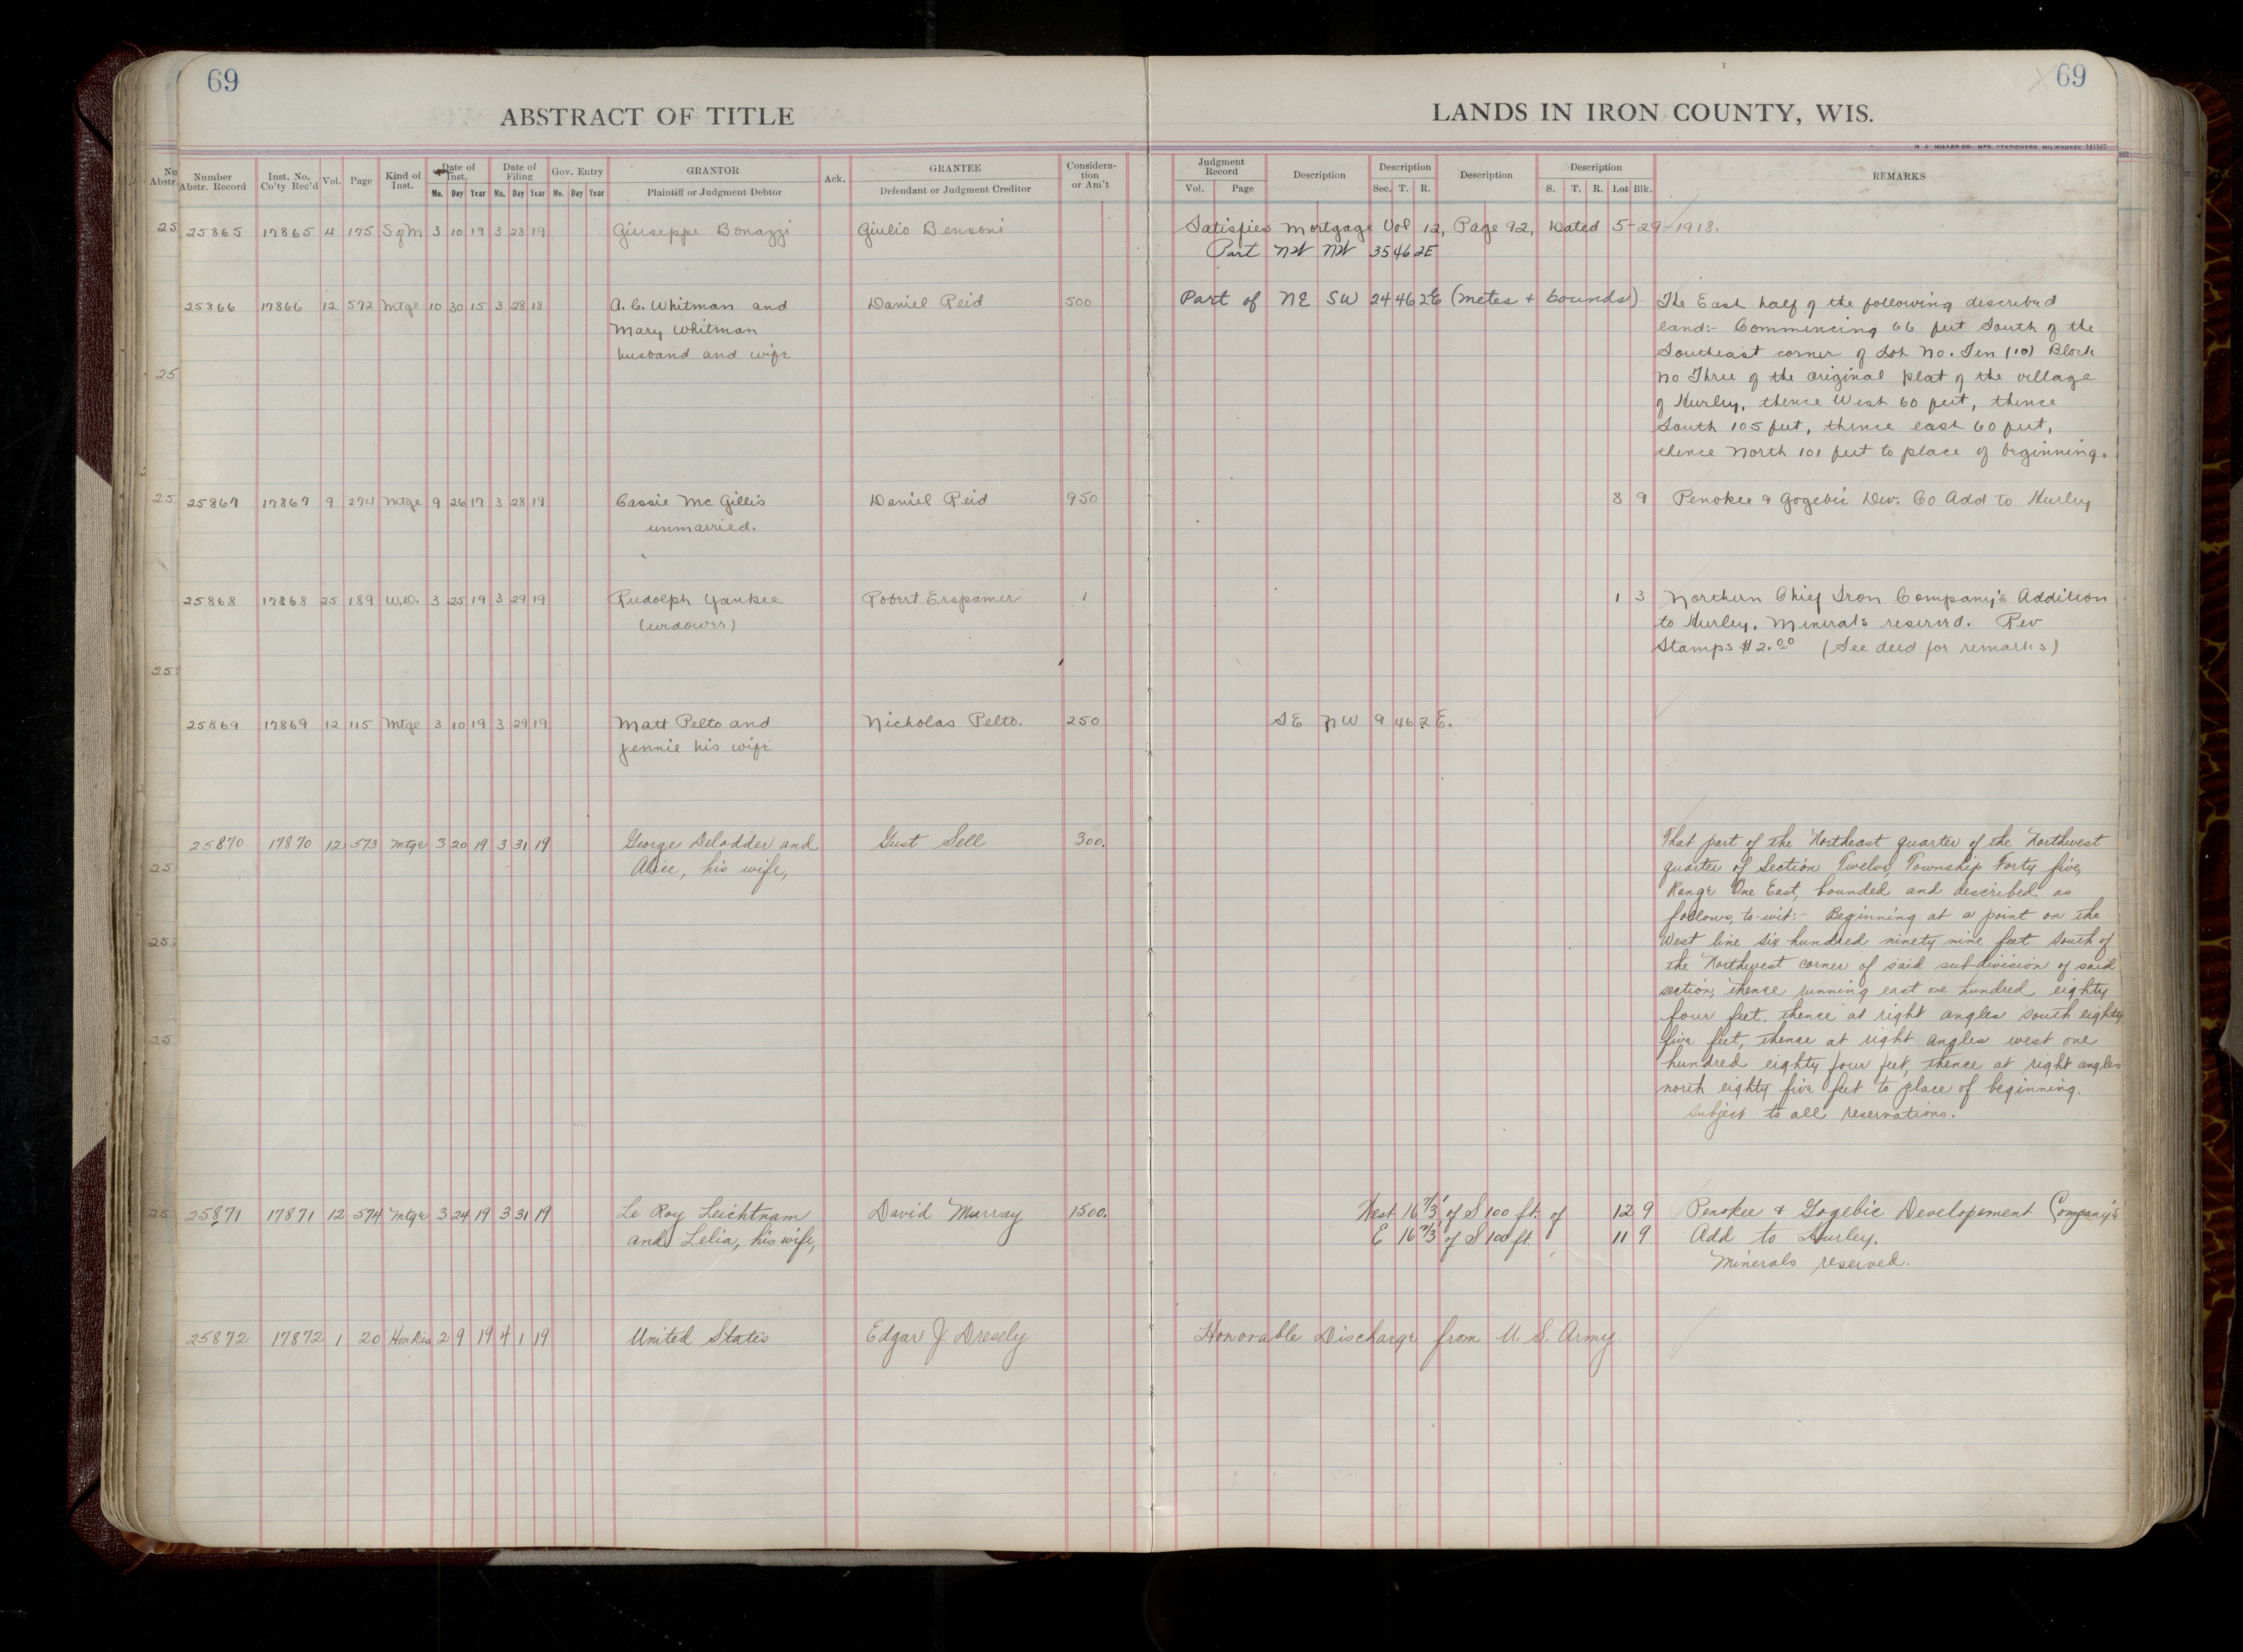 69
69
ABSTRACT OF TITLE
LANDS IN IRON COUNTY, WIS.
Number Abstr. Record Inst. No. Co'ty Rec'd Vol. Page Kind of Inst. Date of Inst. Mo. Day Year Date of Filing Mo. Day Year Gov. Entry Mo. Day Year GRANTOR Plaintiff or Judgment Debtor Ack. GRANTEE Defendant or Judgment Creditor Considera-tion or Am't Judgment Record Vol. Page Description Description Sec. T. R. Description Description S. T. R. Lot Blk. REMARKS
25865 17865 4 175 S of M 3 10 19 3 28 19 Giuseppe Bonazzi Giulio Bensoni Satisfies Mortgage Vol 12, Page 92, Dated 5-29-1918.
Part NW NW 35 46 2E
25866 17866 12 572 Mtge 10 30 15 3 28 18 A. C. Whitman and Daniel Reid 500 Part of NE SW 24 46 2E (metes + bounds) The East half of the following described
Mary Whitman land:- Commencing 66 feet South of the
husband and wife Southeast corner of Lot No. Ten (10) Block
No Three of the original plat of the village
of Hurley, thence West 60 feet, thence
South 105 feet, thence east 60 feet,
thence North 101 feet to place of beginning.
25867 17867 9 274 Mtge 9 26 17 3 28 19 Cassie McGillis Daniel Reid 950 8 9 Penokee & Gogebic Dev. Co Add to Hurley
unmarried.
25868 17868 25 189 W.D. 3 25 19 3 29 19 Rudolph Yankee Robert Erspamer 1 1 3 Northern Chief Iron Company's Addition
(widower) to Hurley. Minerals reserved. Rev
Stamps $2.00 (See deed for remarks)
25869 17869 12 115 Mtge 3 10 19 3 29 19 Matt Pelto and Nicholas Pelto. 250 SE NW 9 46 2 E.
Jennie his wife
25870 17870 12 573 Mtge 3 20 19 3 31 19 George Delodder and Gust Sell 300. That part of the Northeast quarter of the Northwest
Alice, his wife, quarter of Section Twelve, Township Forty five,
Range One East, bounded and described as
follows, to-wit:- Beginning at a point on the
West line six hundred ninety nine feet south of
the Northwest corner of said sub-division of said
section, thence running east one hundred eighty
four feet, thence at right angles south eighty
five feet, thence at right angles west one
hundred eighty four feet, thence at right angles
north eighty five feet to place of beginning.
Subject to all reservations.
25871 17871 12 574 Mtge 3 24 19 3 31 19 Le Roy Leichtnam David Murray 1500. West 16 2/3' of S 100 ft. of 12 9 Penokee & Gogebic Developement Company's
and Lelia, his wife, E 16 2/3' of S 100 ft. 11 9 Add to Hurley.
Minerals reserved.
25872 17872 1 20 Hon Dis 2 9 19 4 1 19 United States Edgar J. Dresely Honorable Discharge from U. S. Army